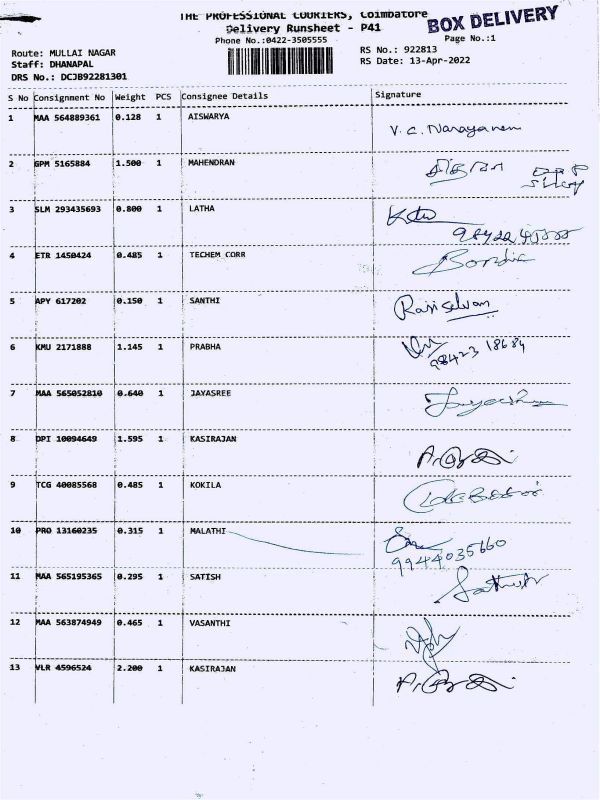 THE PROFESSIONAL COURIERS, Coimbatore
BOX DELIVERY
Delivery Runsheet - P41
Phone No.:0422-3505555
Page No.:1
Route: MULLAI NAGAR
RS No.: 922813
Staff: DHANAPAL
RS Date: 13-Apr-2022
DRS No.: DCJB92281301
S No Consignment No Weight PCS Consignee Details Signature
1 MAA 564889361 0.128 1 AISWARYA V. C. Narayanan
2 GPM 5165884 1.500 1 MAHENDRAN
3 SLM 293435693 0.800 1 LATHA
4 ETR 1450424 0.485 1 TECHEM CORR
5 APY 617202 0.150 1 SANTHI Rajiselvan
6 KMU 2171888 1.145 1 PRABHA
98423 18684
7 MAA 565052810 0.640 1 JAYASREE
8 DPI 10094649 1.595 1 KASIRAJAN
9 TCG 40085568 0.485 1 KOKILA
10 PRO 13160235 0.315 1 MALATHI
9944035660
11 MAA 565195365 0.295 1 SATISH
12 MAA 563874949 0.465 1 VASANTHI
13 VLR 4596524 2.200 1 KASIRAJAN